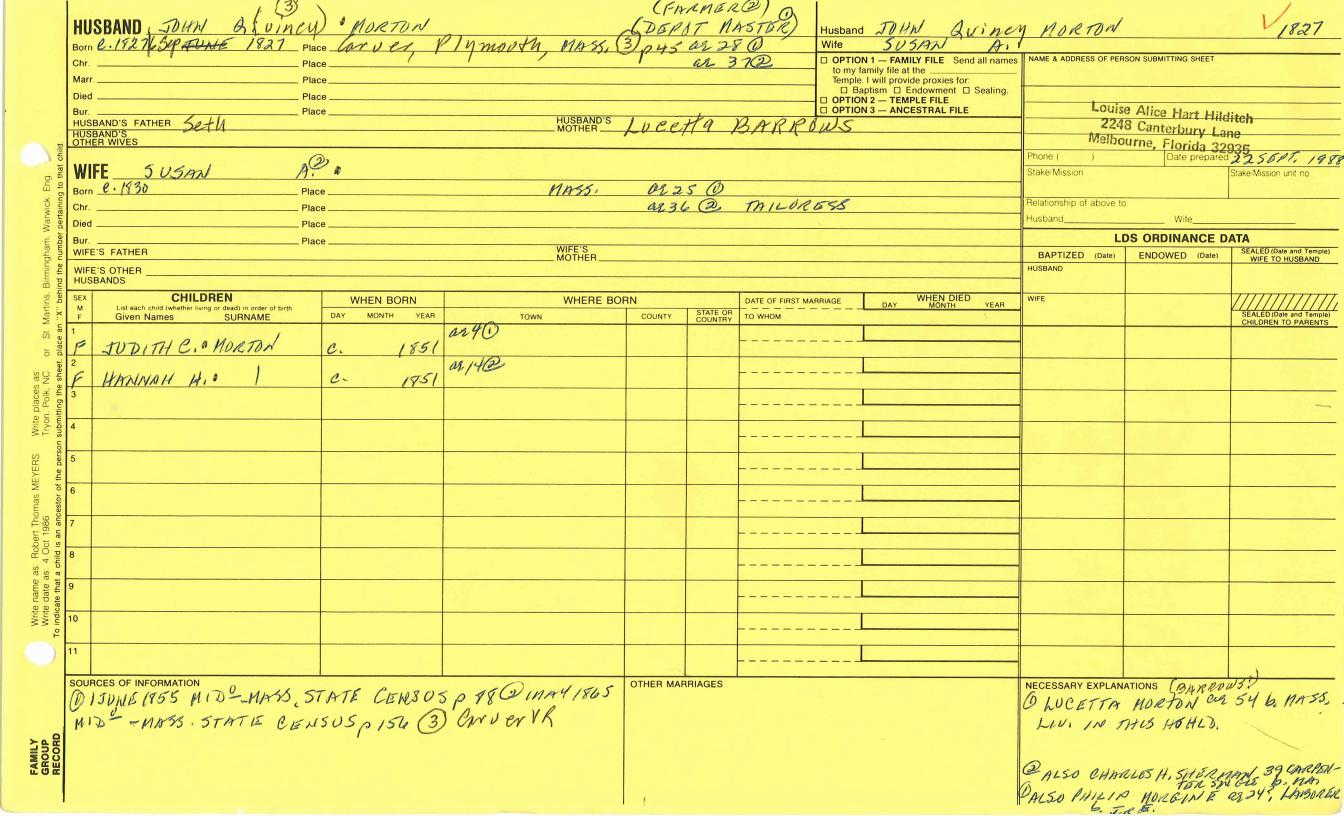 (3) (FARMER ②)
HUSBAND JOHN Q(uincy) MORTON (DEPOT MASTER) ①
Born c. 1827 JUNE 1827 Place Carver, Plymouth, MASS. ③ p45 ae 28 ①
Chr. Place ae 37 ②
Marr Place
Died Place
Bur. Place
HUSBAND'S FATHER Seth HUSBAND'S MOTHER Lucetta BARROWS
HUSBAND'S OTHER WIVES
WIFE SUSAN A. ②
Born c. 1830 Place MASS. ae 25 ①
Chr. Place ae 36 ② TAILORESS
Died Place
Bur. Place
WIFE'S FATHER WIFE'S MOTHER
WIFE'S OTHER HUSBANDS
Husband JOHN Quincy MORTON 1827
Wife SUSAN A.
☐ OPTION 1 — FAMILY FILE Send all names
to my family file at the
Temple. I will provide proxies for
☐ Baptism ☐ Endowment ☐ Sealing.
☐ OPTION 2 — TEMPLE FILE
☐ OPTION 3 — ANCESTRAL FILE
NAME & ADDRESS OF PERSON SUBMITTING SHEET
Louise Alice Hart Hilditch
2248 Canterbury Lane
Melbourne, Florida 32935
Phone ( ) Date prepared 22 SEPT. 1988
Stake/Mission Stake/Mission unit no.
Relationship of above to
Husband Wife
LDS ORDINANCE DATA
BAPTIZED (Date) ENDOWED (Date) SEALED (Date and Temple) WIFE TO HUSBAND
HUSBAND
WIFE
SEALED (Date and Temple) CHILDREN TO PARENTS
SEX M F
CHILDREN
List each child (whether living or dead) in order of birth
Given Names SURNAME
WHEN BORN
DAY MONTH YEAR
WHERE BORN
TOWN COUNTY STATE OR COUNTRY
DATE OF FIRST MARRIAGE
TO WHOM
WHEN DIED
DAY MONTH YEAR
1 F JUDITH C. MORTON c. 1851 ae 4 ①
2 F HANNAH H. c. 1851 ae 14 ②
3
4
5
6
7
8
9
10
11
SOURCES OF INFORMATION
① 1 JUNE 1855 MID⁰ MASS. STATE CENSUS p 98 ② 1 MAY 1865
MID⁰ - MASS. STATE CENSUS p 156 ③ Carver VR
OTHER MARRIAGES
NECESSARY EXPLANATIONS (BARROWS?)
① LUCETTA MORTON ae 54 b. MASS.
LIV. IN THIS HSHLD.
② ALSO CHARLES H. SHERMAN 39 CARPEN-
TER SINGLE b. MA.
① ALSO PHILIP ae 24, LABORER
b. IRE.
Write name as Robert Thomas MEYERS Write places as Tryon, Polk, NC or St Martins, Birmingham, Warwick, Eng
Write date as 4 Oct 1986
To indicate that a child is an ancestor of the person submitting the sheet, place an "X" behind the number pertaining to that child
FAMILY GROUP RECORD